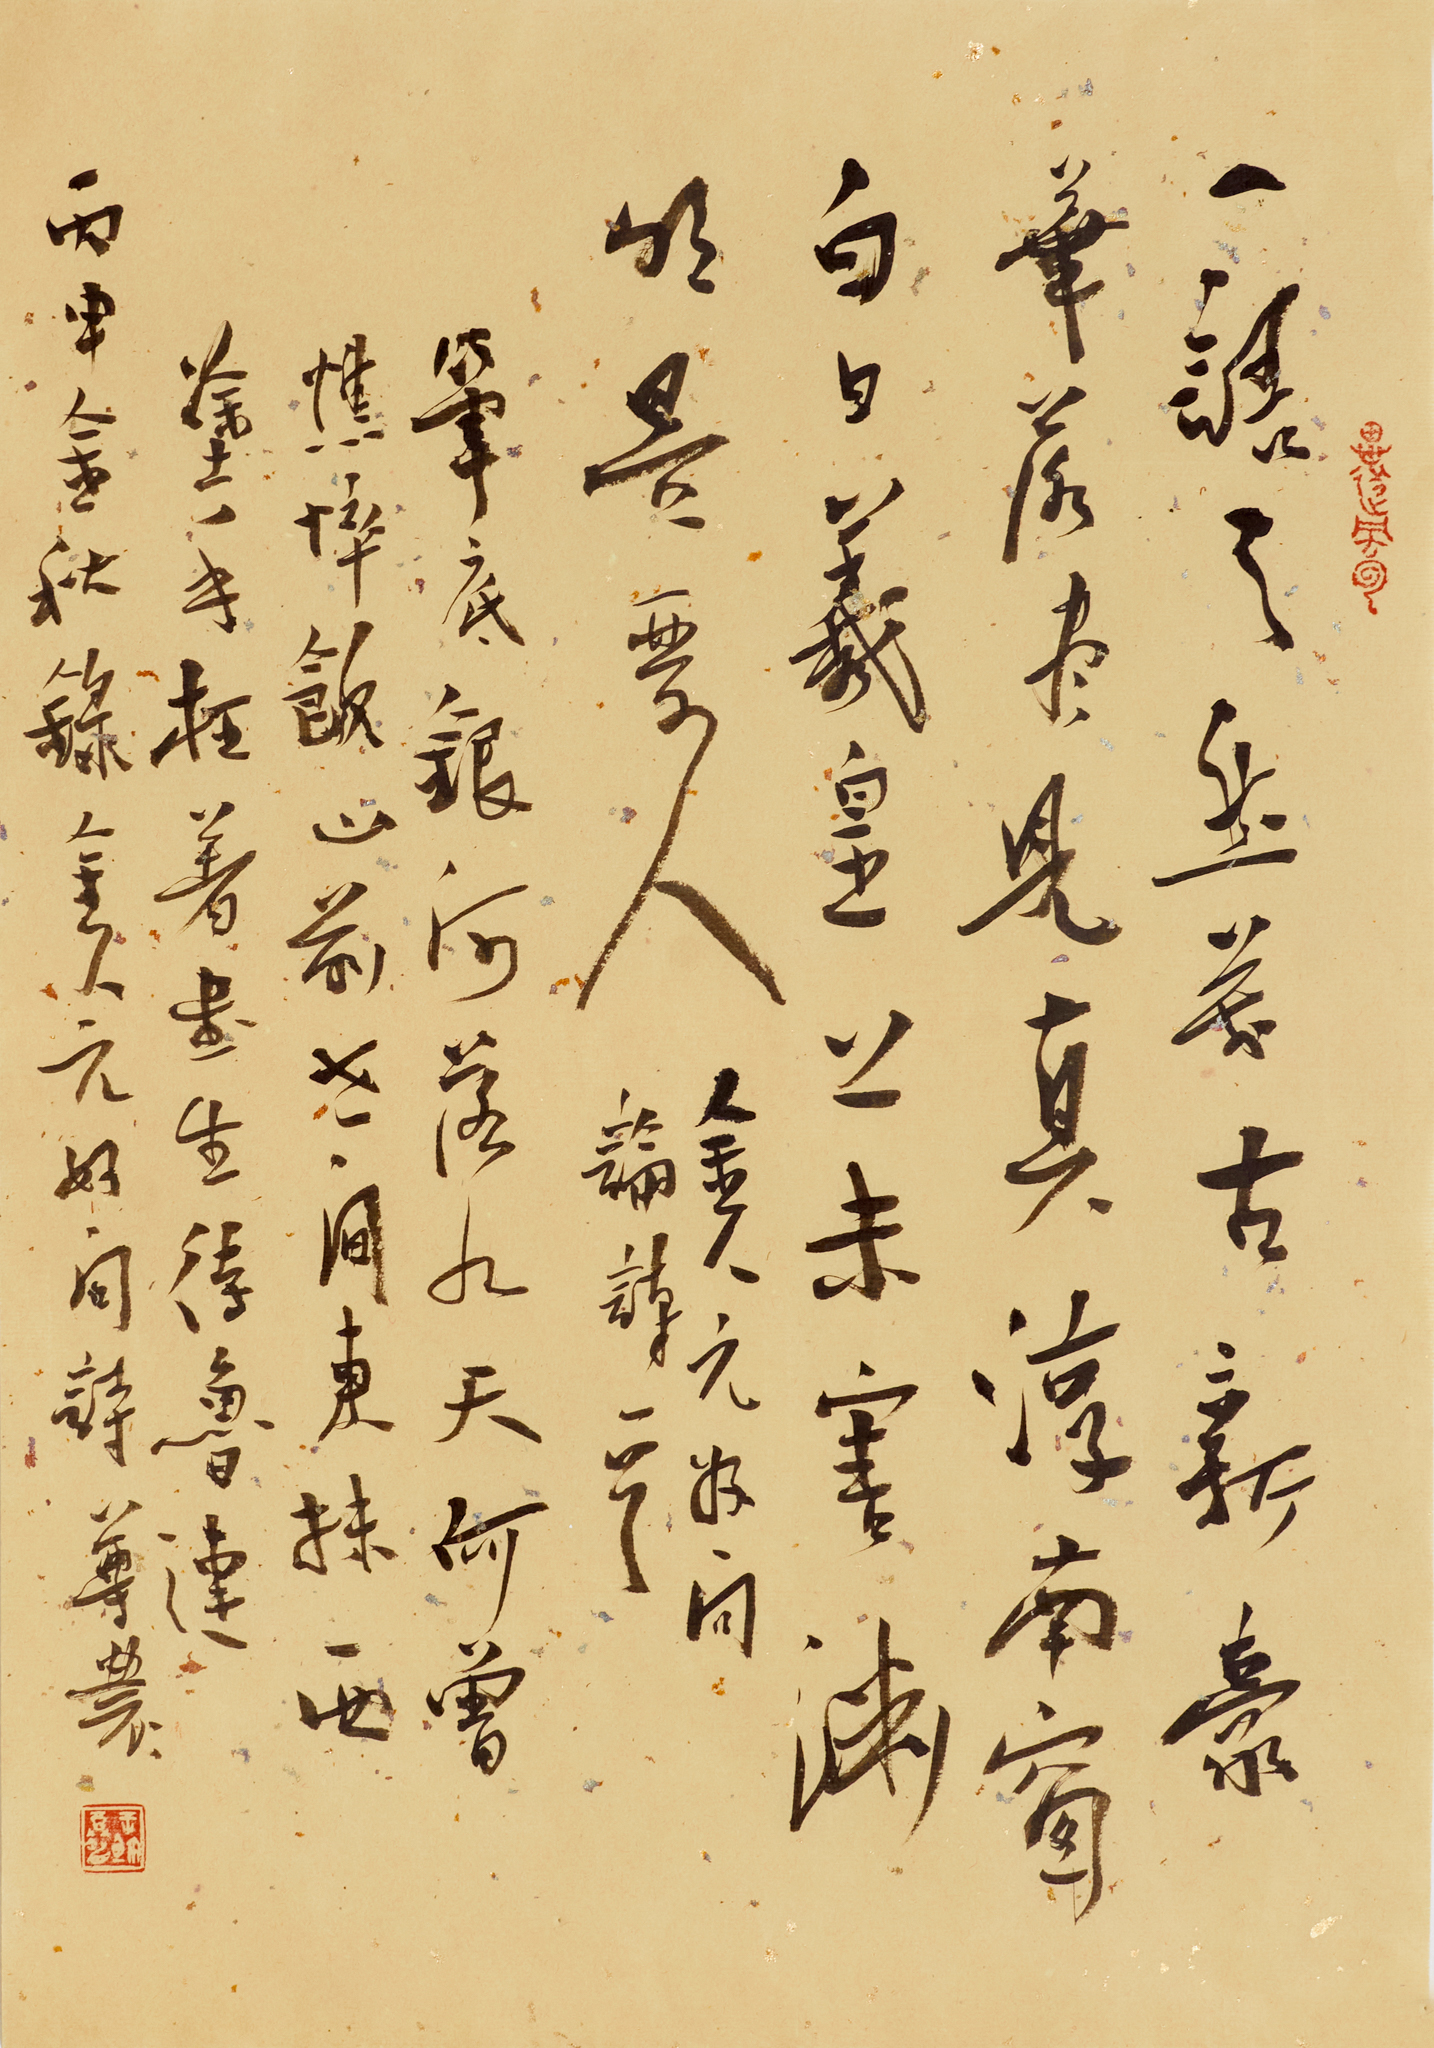 一語天然萬古新豪
華落盡見真淳南窗
白日羲皇上未害淵
明是晉人
金人元好問
論詩一首
筆底銀河落九天何曾
憔悴飯山前世間東抹西
塗手枉著書生待魯連
丙申金秋錄金人元好問詩尊農